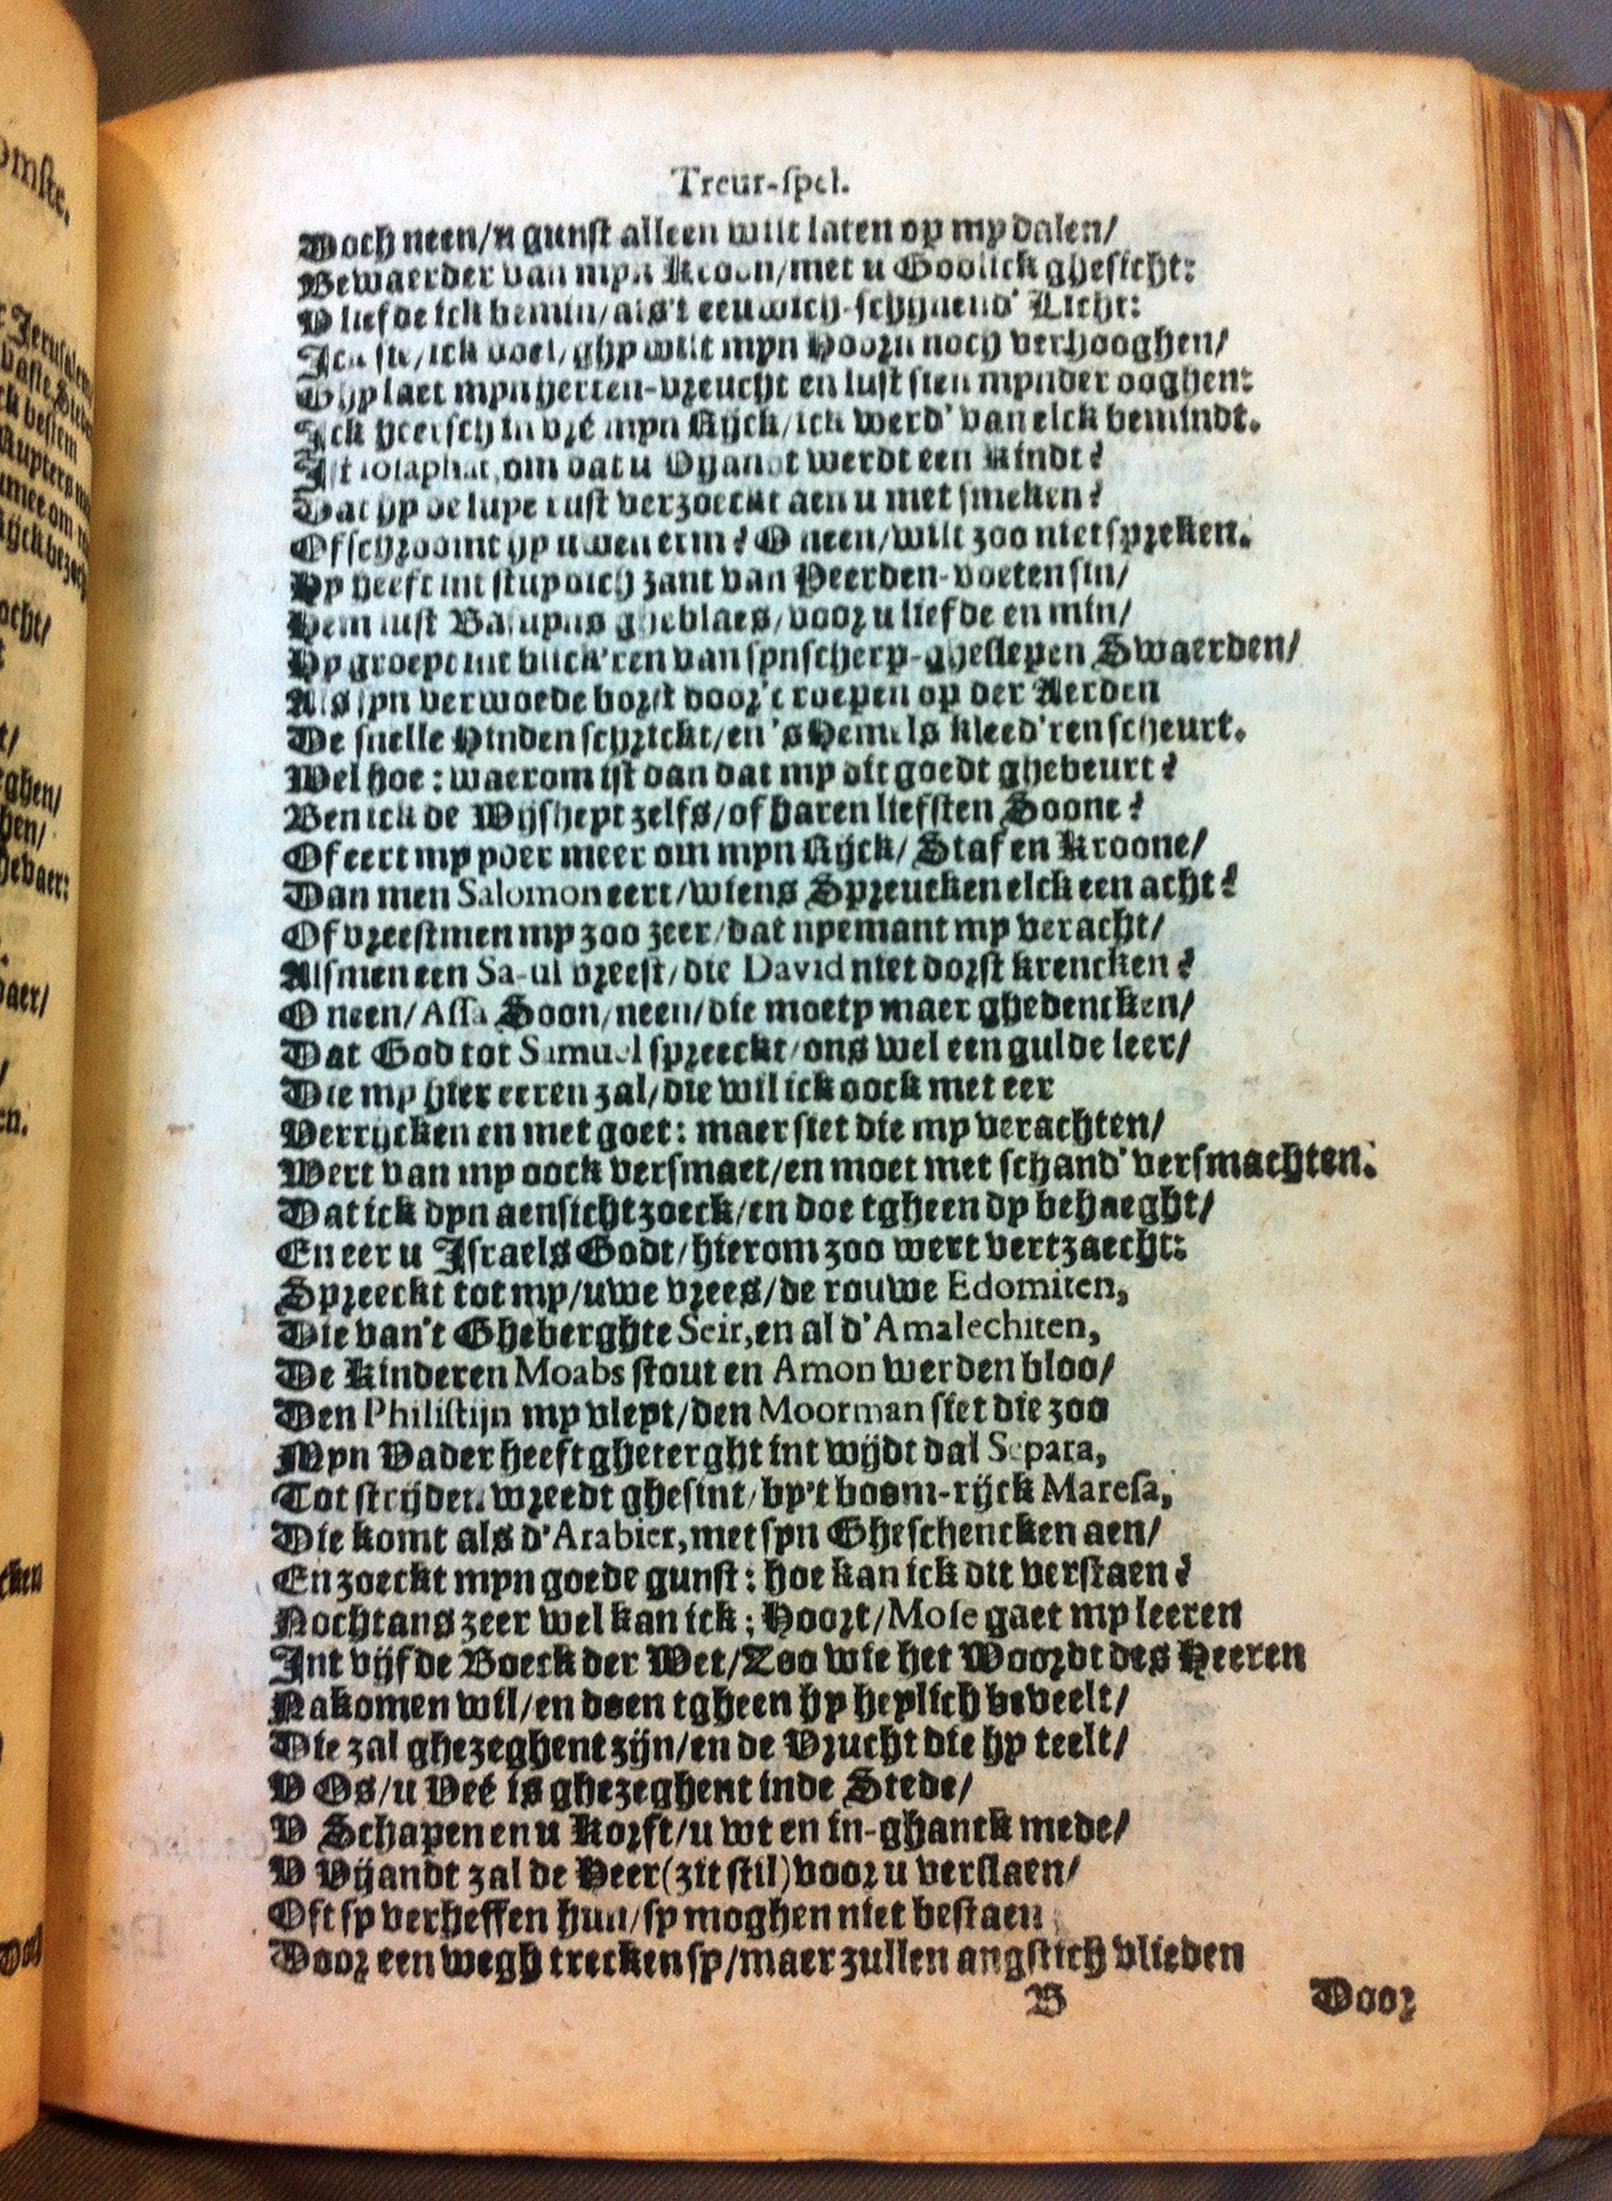 Treur-spel.
Doch neen/u gunst alleen wilt laten op my dalen/
Bewaerder van myn Kroon/met u Godlick ghesicht:
U liefde ick bemin/als't eeuwich-schynend' Licht:
Ick sie/ick voel/ghy wilt myn Hoorn noch verhooghen/
Ghy laet myn herten-vreucht en lust sien mynder ooghen:
Ick heersch in vré myn Rijck/ick werd' van elck bemindt.
Ist Iosaphat, om dat u Vyandt werdt een Kindt?
Dat hy de luye rust verzoeckt aen u met smeken?
Of schroomt hy uwen erm? O neen/wilt zoo niet spreken.
Hy heeft int stuyvich zant van Peerden-voeten sin/
Hem lust Basuyns gheblaes/voor u liefde en min/
Hy groeyt int blick'ren van syn scherp-gheslepen Swaerden/
Als syn verwoede borst door't roepen op der Aerden
De snelle Hinden schrickt/en 's Hemels kleed'ren scheurt.
Wel hoe: waerom ist dan dat my dit goedt ghebeurt?
Ben ick de Wijsheyt zelfs/of haren liefsten Soone?
Of eert my yder meer om myn Rijck/Staf en Kroone/
Dan men Salomon eert/wiens Spreucken elck een acht?
Of vreestmen my zoo zeer/dat nyemant my veracht/
Alsmen een Sa-ul vreest/die David niet dorst krencken?
O neen/Assa Soon/neen/die moet y maer ghedencken/
Dat God tot Samuel spreeckt/ons wel een gulde leer/
Die my hier eeren zal/die wil ick oock met eer
Verrycken en met goet: maer siet die my verachten/
Wert van my oock versmaet/en moet met schand' versmachten.
Dat ick dyn aensicht zoeck/en doe tgheen dy behaeght/
En eer u Israels Godt/hierom zoo wert vertzaecht:
Spreeckt tot my/uwe vrees/de rouwe Edomiten,
Die van't Gheberghte Seir, en al d'Amalechiten,
De kinderen Moabs stout en Amon werden bloo/
Den Philistijn my vleyt/den Moorman siet die zoo
Myn Vader heeft gheterght int wijdt dal Separa,
Tot strijden wreedt ghesint/by't boom-rijck Maresa,
Die komt als d'Arabier, met syn Gheschencken aen/
En zoeckt myn goede gunst: hoe kan ick dit verstaen?
Nochtans zeer wel kan ick; Hoort/Mose gaet my leeren
Int vijfde Boeck der Wet/Zoo wie het Woordt des Heeren
Nakomen wil/en doen tgheen hy heylich beveelt/
Die zal ghezeghent zijn/en de Vrucht die hy teelt/
U Os/u Veé is ghezeghent inde Stede/
U Schapen en u Korft/u wt en in-ghanck mede/
U Vijandt zal de Heer(zit stil)voor u verslaen/
Oft sy verheffen hun/sy moghen niet bestaen
Door een wegh trecken sy/maer zullen angstich vlieden
B Door